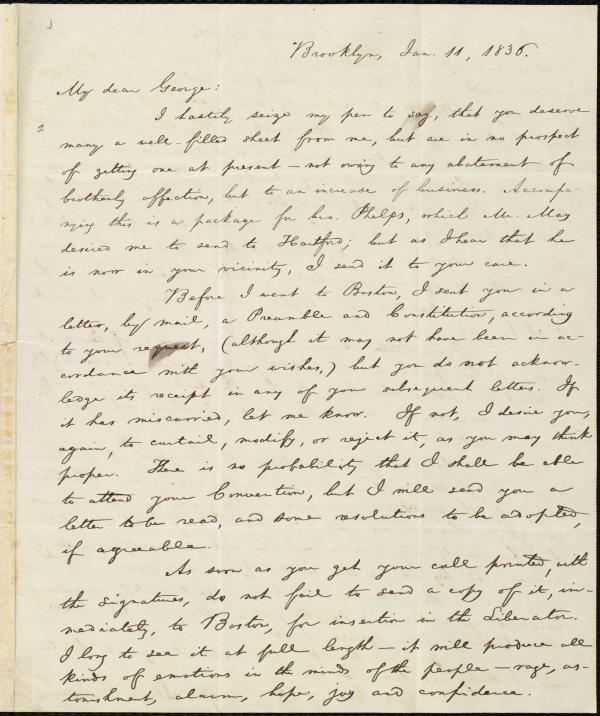 Brooklyn, Jan. 11, 1836.
My dear George:
I hastily seize my pen to say, that you deserve
many a well-filled sheet from me, but are in no prospect
of getting one at present — not owing to any abatement of
brotherly affection, but to an increase of business. Accompa-
nying this is a package for bro. Phelps, which Mr. May
desired me to send to Hartford; but as I hear that he
is now in your vicinity, I send it to your care.
Before I went to Boston, I sent you in a
letter, by mail, a Preamble and Constitution, according
to your request, (although it may not have been in ac-
cordance with your wishes,) but you do not acknow-
ledge its receipt in any of your subsequent letters. If
it has miscarried, let me know. If not, I desire you,
again, to curtail, modify, or reject it, as you may think
proper. There is no probability that I shall be able
to attend your Convention, but I will send you a
letter to be read, and some resolutions to be adopted,
if agreeable.
As soon as you get your call printed, with
the signatures, do not fail to send a copy of it, im-
mediately, to Boston, for insertion in the Liberator.
I long to see it at full length — it will produce all
kinds of emotions in the minds of the people — rage, as-
tonishment, alarm, hope, joy and confidence.